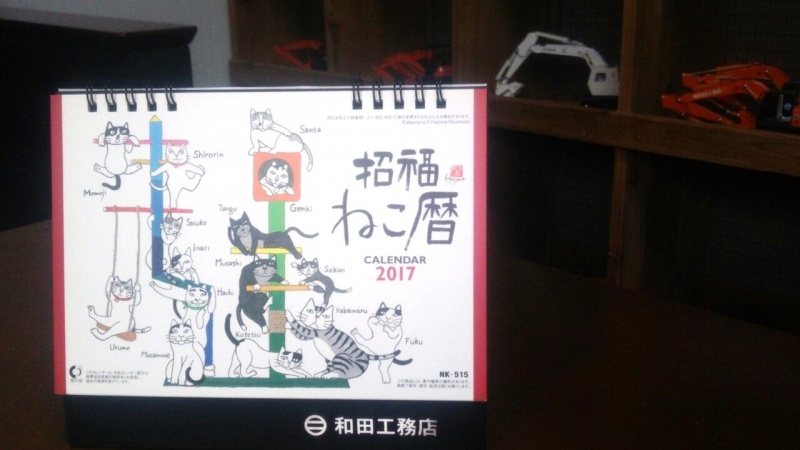 Santa
Kabamaru & Hajime Okamoto
招福
ねこ暦
Hajime
CALENDAR
2017
Momoji
Shirorin
Tango
Genki
Sasuke
Inari
Musashi
Sakon
Hachi
Kabamaru
Kotetsu
Urume
Masamune
Fuku
NK-515
和田工務店